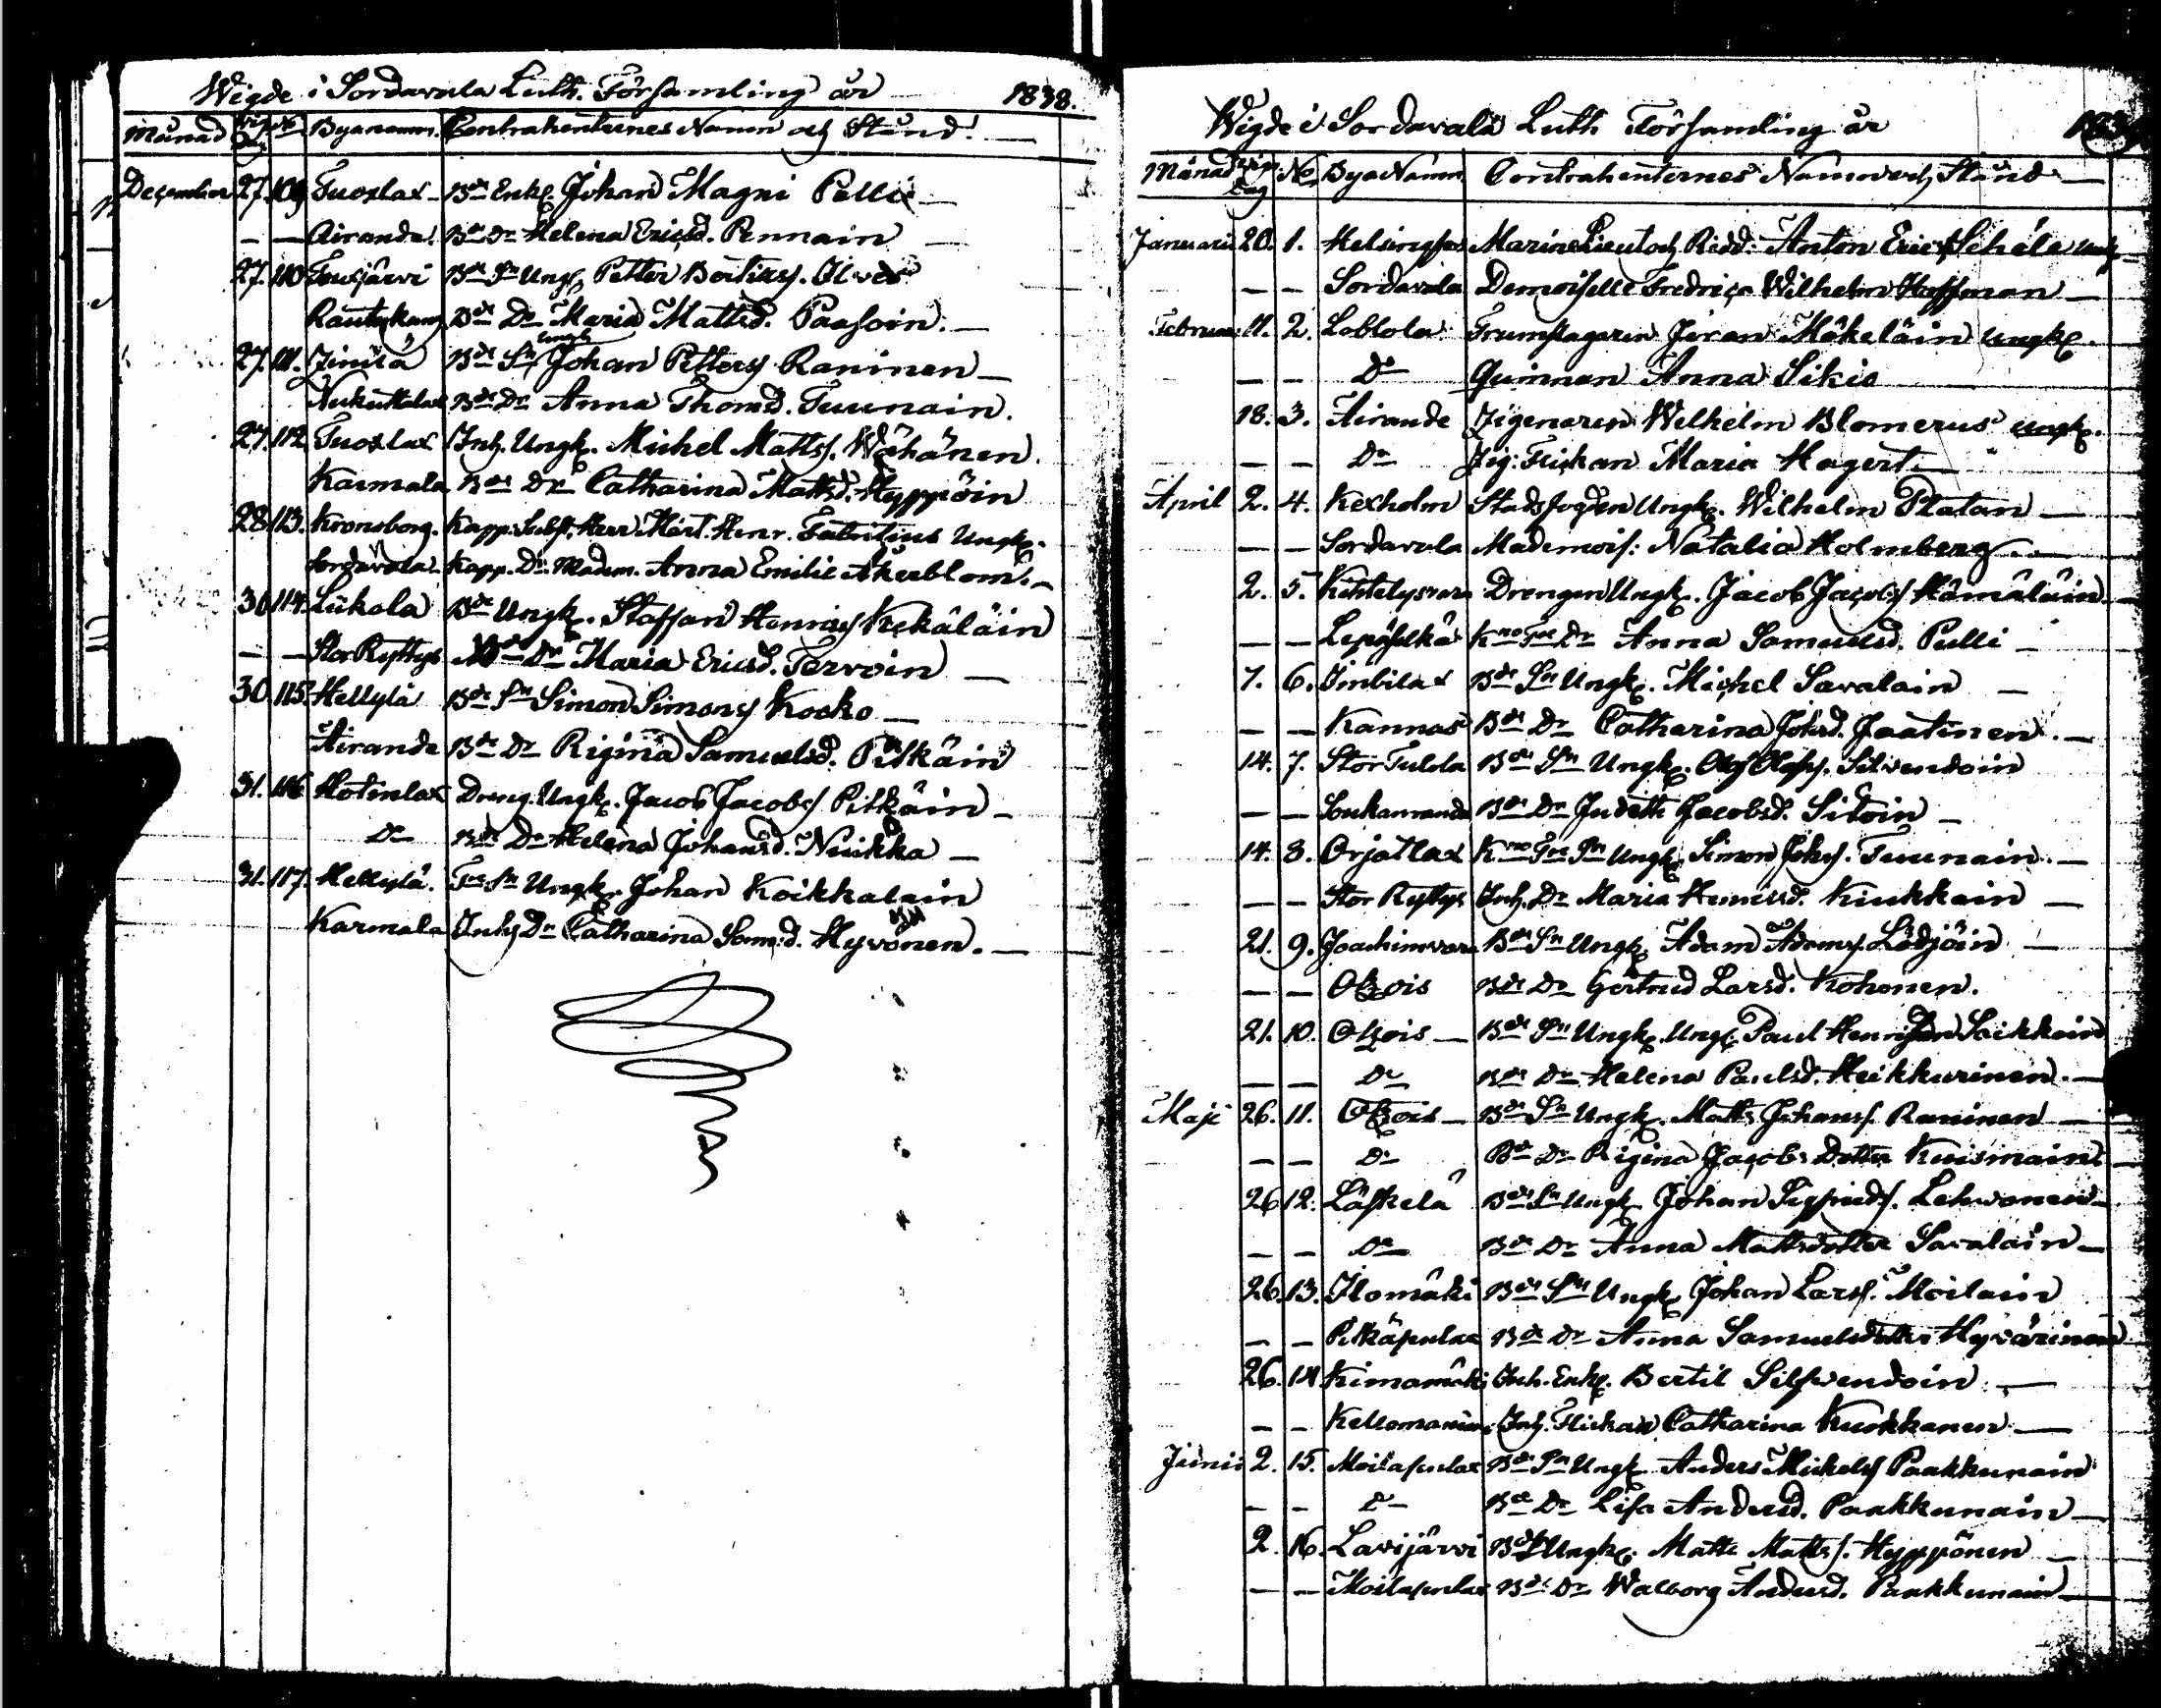 Wigde i Sordavala Luth. Församling år 1838.
Månad Dag No Byanamn. Contrahenternes Namn och Stånd.
December 27. 109 Tuoxlax Bde Enkl. Johan Magni Pelli
— — Airanda. Bde Dr Helena Ericsd. Pennain
27. 110 Bde Sn Ungk. Petter Bertilss. Ilves
Rautukang Bde Dr Maria Mattsd. Paasoin.
27. 111. Bde Sn Ungk Johan Petterss Raninen
Nukuttalax Bde Dr Anna Thomd. Tuunain.
27. 112 Tuoxlax Inh. Ungk. Michel Matts. Wähänen.
Karmala Bde Dr Catharina Mattsd. Hyppöin
28. 113. Kronoborg. Kapp. Herr Mårt. Henr. Fabritius Ungk.
Sordavala Kapp. Dr Madem. Anna Emilie Åkerblom.
30 114. Liikola Bde Ungk. Staffan Henrics Kekäläin
— — Stor Ryttys Bde Dr Maria Ericsd. Tervoin
30. 115. Hellylä Bde Sn Simon Simons Kosko
Airande Bde Dr Rigina Samuelsd. Pitkäin
31. 116 Hotinlax Dreng. Ungk. Jacob Jacobs Pitkäin
Do Bde Dr Helena Johansd. Nuikka
31. 117. Hellylä. Tpe Sn Ungk. Johan Koikkalain
Karmala Inhs Dr Catharina Sam:d. Hyvönen.
Wigde i Sordavala Luth Församling år
Månad Dag No. Bya Namn. Contrahenternes Namn och Stånd
Januarii 20. 1. Helsingfors Marine Lieut och Ridd. Anton Eric Schéle ungk
— — Sordavala Demoiselle Fredrica Wilhelm Hoffman
Februari 11. 2. Loblola Trumslagaren Jöran Mäkeläin ungk.
— — Do Quinnan Anna Sikio
18. 3. Airande Zigenaren Welhelm Blomerus ungk.
— — Do Zig: Flickan Maria Hagert
April 2. 4. Kexholm Stadsfogden Ungk. Wilhelm Platan
— — Sordavala Mademois: Natalia Holmberg
2. 5. Kihtelysvara Drengen Ungk. Jacob Jacobs Hämäläin
— — Lepäselkä Kno Tpe Dr Anna Samuelsd. Pulli
7. 6. Imbilax Bde Sn Ungk. Michel Savalain
— — Kannas Bde Dr Catharina Johsd. Jaatinen.
14. 7. Stor Tulola Bde Sn Ungk. Olof Olofs. Silvendoin
— — Soukanranda Bde Dr Judeth Jacobsd. Sitoin
14. 8. Orjatlax Kno Tpe Sn Ungk. Simon Johs. Tuunain.
— — Stor Ryttys Inh. Dr Maria Henricsd. Kiukkain
21. 9. Joachimvara Bde Sn Ungk. Adam Adams. Lödjöin
— — Otsois Bde Dr Gertrud Larsd. Kohonen.
21. 10. Otsois Bde Sn Ungk. Ungk. Paul Henrisson Saikkoin
— — Do Bde Dr Helena Paulsd. Heikkurinen.
Maji 26. 11. Otsois Bde Sn Ungk. Matts Johans. Raninen
— — Do Bde Dr Rigina Jacobs Dotter Kuismain
26 12. Läskelä Bde Sn Ungk. Johan Sigfrids. Lehvonen
— — Do Bde Dr Anna Mattsdotter Savalain
26. 13. Ilomäki Bde Sn Ungk Johan Lars. Moilain
— — Pitkäpenlax Bde Dr Anna Samuelsdotter Hyvärinen
26. 14 Kimamäki Inh. Enkl. Bertil Silfvendoin
— — Inh. Flickan Catharina Kuokkanen
Junii 2. 15. Moilasenlax Bde Sn Ungk. Anders Michels Paakkunain
— — Do Bde Dr Lisa Andersd. Paakkunain
2. 16. Lavijärvi Bde Sn Ungk. Matts Matts. Hyppönen
— — Moilasenlax Bde Dr Walborg Andersd. Paakkunain